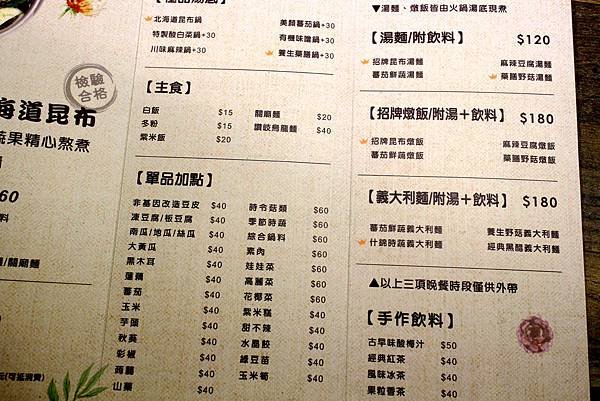 北海道昆布鍋
特製酸白菜鍋+30
川味麻辣鍋+30
美顏蕃茄鍋+30
有機味噌鍋+30
養生藥膳鍋+30
【主食】
白飯 $15
冬粉 $15
紫米飯 $20
關廟麵 $20
讚岐烏龍麵 $40
【單品加點】
非基因改造豆皮 $40
凍豆腐/板豆腐 $40
南瓜/地瓜/絲瓜 $40
大黃瓜 $40
黑木耳 $40
蓮藕 $40
蕃茄 $40
玉米 $40
芋頭 $40
秋葵 $40
彩椒 $40
蒟蒻 $40
山藥 $40
時令菇類 $60
季節時蔬 $60
綜合鍋料 $60
素肉 $60
娃娃菜 $60
高麗菜 $60
花椰菜 $60
紫米糕 $40
甜不辣 $40
水晶餃 $40
綠豆苗 $40
玉米筍 $40
▼湯麵、燉飯皆由火鍋湯底現煮
【湯麵/附飲料】 $120
招牌昆布湯麵
蕃茄鮮蔬湯麵
麻辣豆腐湯麵
藥膳野菇湯麵
【招牌燉飯/附湯+飲料】 $180
招牌昆布燉飯
蕃茄鮮蔬燉飯
麻辣豆腐燉飯
藥膳野菇燉飯
【義大利麵/附湯+飲料】 $180
蕃茄鮮蔬義大利麵
什錦時蔬義大利麵
養生野菇義大利麵
經典黑醋義大利麵
▲以上三項晚餐時段僅供外帶
【手作飲料】
古早味酸梅汁 $50
經典紅茶 $40
風味冰茶 $40
果粒香茶 $40
檢驗
合格
海道昆布
蔬果精心熬煮
60
料
麵/關廟麵